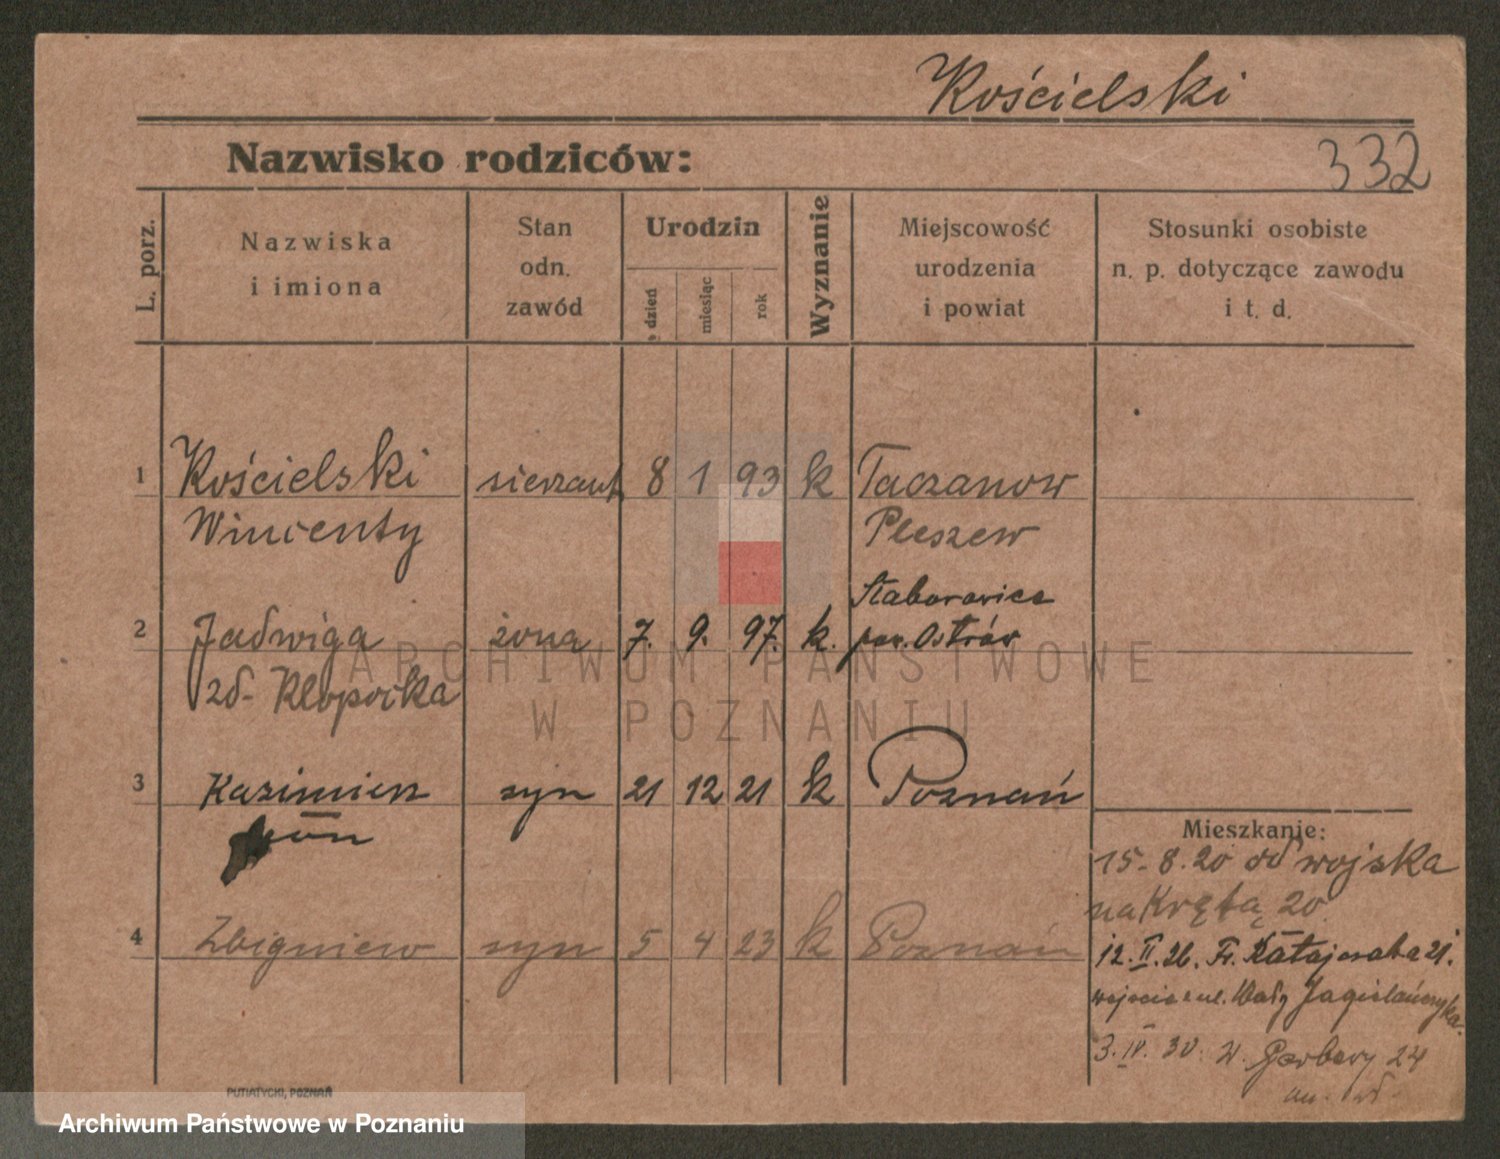 Kościelski
332
Nazwisko rodziców:
L. porz.
Nazwiska
i imiona
Stan
odn.
zawód
Urodzin
dzień
miesiąc
rok
Wyznanie
Miejscowość
urodzenia
i powiat
Stosunki osobiste
n. p. dotyczące zawodu
i t. d.
1 Kościelski sierżant 8 1 93 k Taczanow
Wincenty Pleszew
Staborowice
2 Jadwiga żona 7. 9. 97. k. pow. Ostrów
zd- Kłopocka
3 Kazimierz syn 21 12 21 k Poznań
4 Zbigniew syn 5 4 23 k Poznań
Mieszkanie:
15-8.20 od wojska
na Krętą 20
12.II.26. Fr. Ratajczaka 21.
wejście z ul. Wały Jagiellończyka.
3.IV.30. W. Garbary 24
ARCHIWUM PAŃSTWOWE
W POZNANIU
PUTIATYCKI, POZNAŃ
Archiwum Państwowe w Poznaniu